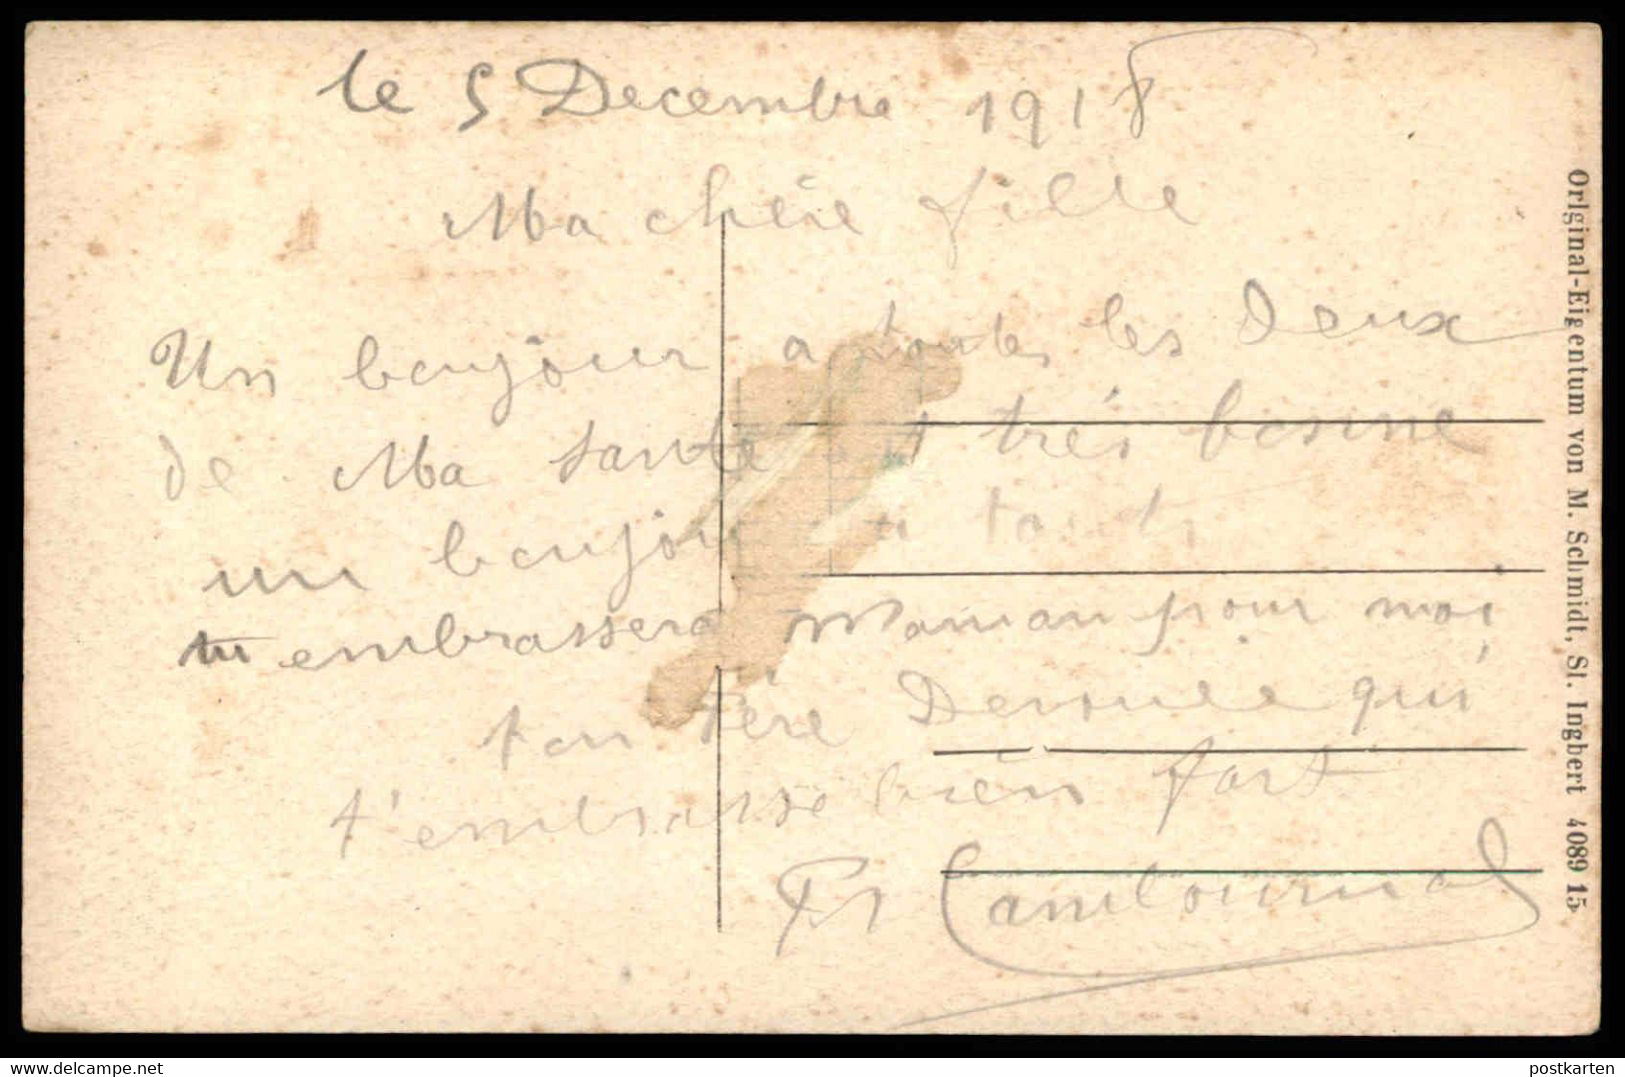 le 5 Decembre 1918
Ma chère fille
Un boujour a toutes les Deux
de Ma sante très bonne
un boujour a toute
tu embrassera Maman pour moi
ton Père Devouée qui
t'embrasse bien fort
Cambournal
Orlginal-Eigentum von M. Schmidt, St. Ingbert 4089 15
postkarten
delcampe.net